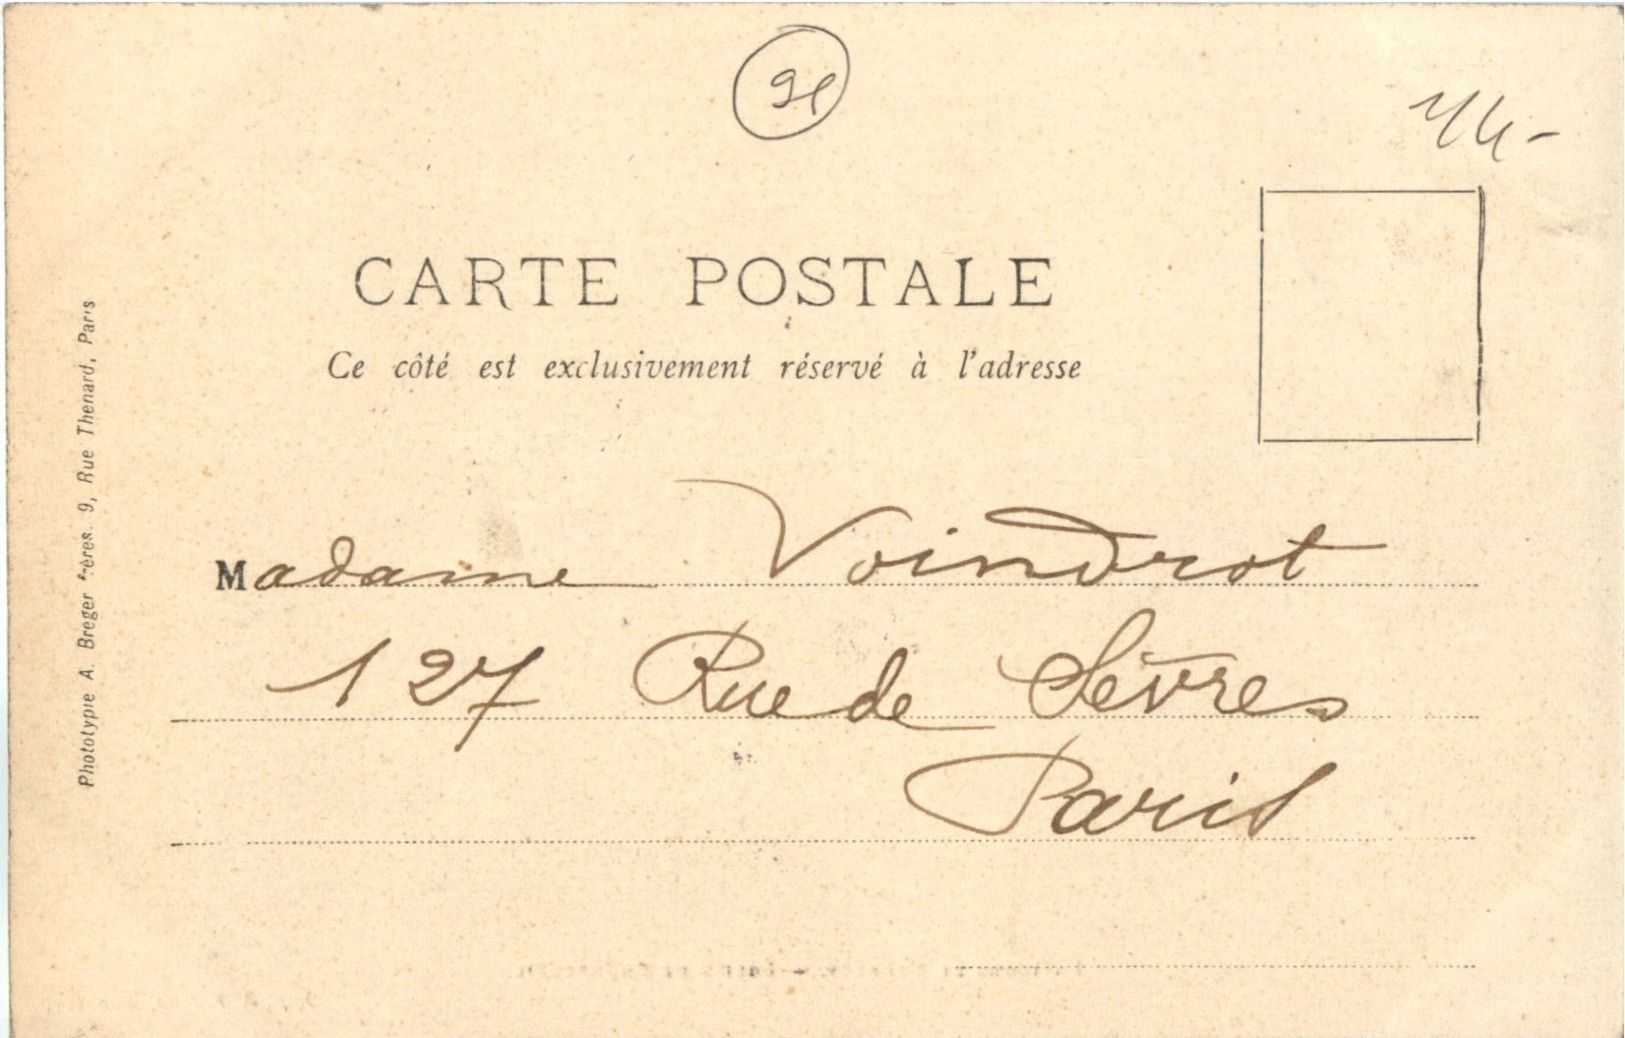 91
CARTE POSTALE
Ce côté est exclusivement réservé à l'adresse
Madame Voindrot
127 Rue de Sèvres
Paris
Phototypie A. Breger frères. 9, Rue Thenard, Paris